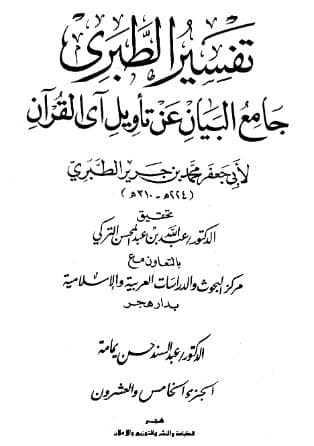 تفسير الطبري
جامع البيان عن تأويل آي القرآن
لأبي جعفر محمد بن جرير الطبري
(٢٢٤هـ - ٣١٠هـ)
تحقيق
الدكتور/ عبد الله بن عبد المحسن التركي
بالتعاون مع
مركز البحوث والدراسات العربية والإسلامية
بدار هجر
الدكتور/ عبد السند حسن يمامة
الجزء الخامس والعشرون
هجر
للطباعة والنشر والتوزيع والإعلان